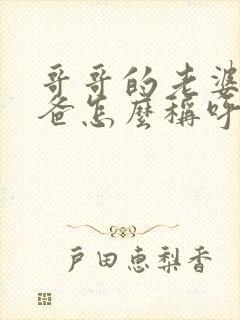 哥哥的老婆
爸怎麼稱呼
戶田恵梨香